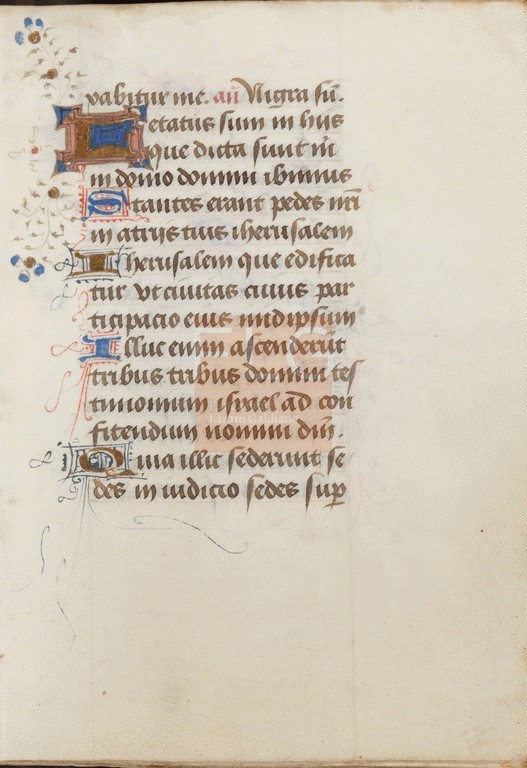 vabitur me. an̄ Nigra sū.
Letatus sum in hijs
que dicta sunt m̄
in domo domini ibimus
Stantes erant pedes nr̄i
in atrijs tuis iherusalem
Iherusalem que edifica
tur vt ciuitas cuius par
ticipacio eius in idipsum
Illuc enim ascenderūt
tribus tribus domini tes
timonium israel ad con
fitendum nomini dn̄i.
Quia illic sederunt se
des in iudicio sedes sup
Lázaro Galdiano